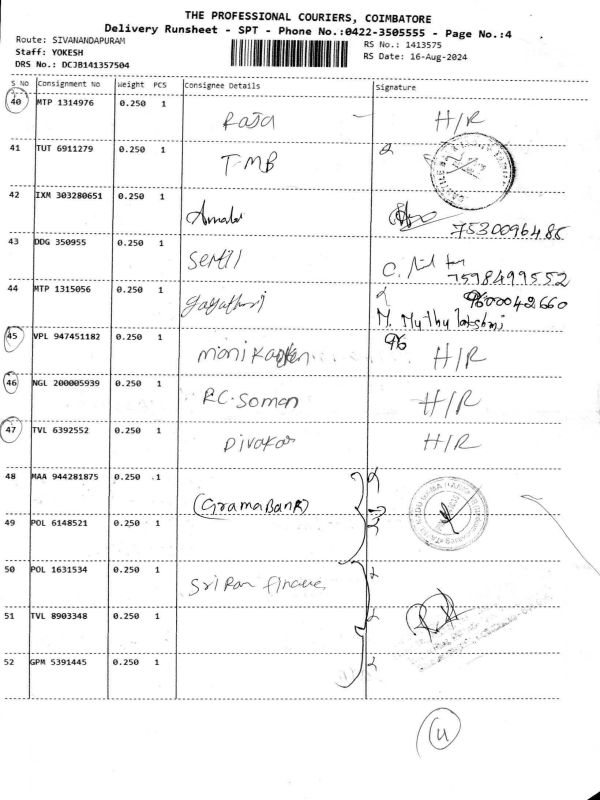 THE PROFESSIONAL COURIERS, COIMBATORE
Delivery Runsheet - SPT - Phone No.:0422-3505555 - Page No.:4
Route: SIVANANDAPURAM
RS No.: 1413575
Staff: YOKESH
RS Date: 16-Aug-2024
DRS No.: DCJB141357504
S No Consignment No Weight PCS Consignee Details Signature
40 MTP 1314976 0.250 1 Raja H/R
41 TUT 6911279 0.250 1 T-MB
42 IXM 303280651 0.250 1
7530096486
43 DDG 350955 0.250 1 Sentil
7598499552
44 MTP 1315056 0.250 1 gayathri
9600042660
M. Muthu lakshmi
45 VPL 947451182 0.250 1 H/R
96
46 NGL 200005939 0.250 1 R.C. Soman H/R
47 TVL 6392552 0.250 1 Divakar H/R
48 MAA 944281875 0.250 1
(Grama Bank)
49 POL 6148521 0.250 1
50 POL 1631534 0.250 1 Sri Ram finance
51 TVL 8903348 0.250 1
52 GPM 5391445 0.250 1